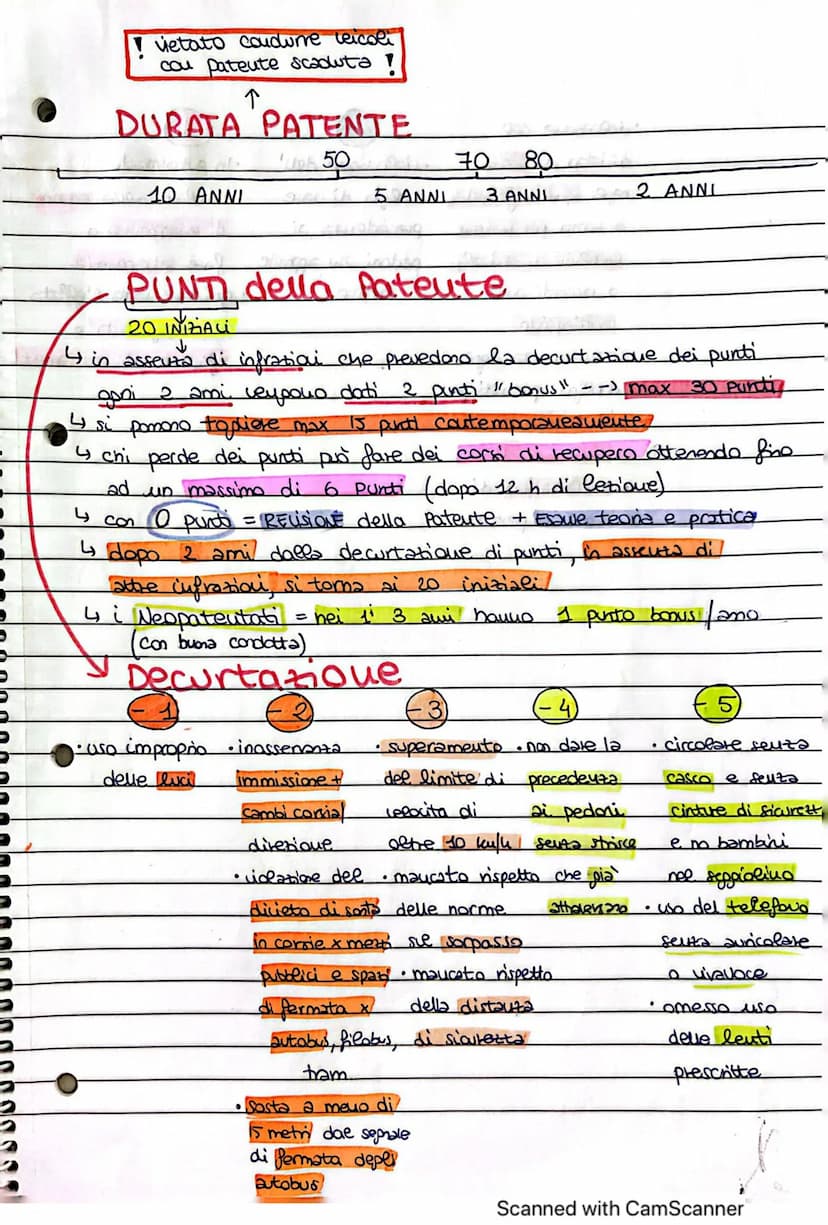 ! vietato condurre veicoli
con patente scaduta !
DURATA PATENTE
50 70 80
10 ANNI 5 ANNI 3 ANNI 2 ANNI
PUNTI della Patente
20 INIZIALI
↳ in assenza di infrazioni che prevedono la decurtazione dei punti
ogni 2 anni vengono dati 2 punti "bonus" --> max 30 punti
↳ si possono togliere max 15 punti contemporaneamente
↳ chi perde dei punti può fare dei corsi di recupero ottenendo fino
ad un massimo di 6 punti (dopo 12 h di lezione)
↳ con 0 punti = REVISIONE della Patente + Esame teoria e pratica
↳ dopo 2 anni dalla decurtazione di punti, in assenza di
altre infrazioni, si torna ai 20 iniziali
↳ i Neopatentati = nei 1' 3 anni hanno 1 punto bonus/anno
(con buona condotta)
Decurtazione
-1
• uso improprio
delle luci
-2
• inosservanza
immissione +
cambi corsia/
direzione
• violazione del
divieto di sosta
in corsie x mezzi
pubblici e spazi
di fermata x
autobus, filobus,
tram
• sosta a meno di
15 metri dal segnale
di fermata degli
autobus
-3
• superamento
del limite di
velocità di
oltre 10 km/h
• mancato rispetto
delle norme
sul sorpasso
• mancato rispetto
della distanza
di sicurezza
-4
• non dare la
precedenza
ai pedoni
senza strisce
che già
attraversano
-5
• circolare senza
casco e senza
cinture di sicurezz
e no bambini
nel seggiolino
• uso del telefono
senza auricolare
o vivavoce
• omesso uso
delle lenti
prescritte
Scanned with CamScanner